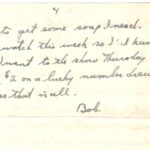 4
to get some soap I need.
watch this week so I'll hav
I went to the show Thursday
$2 on a lucky number draw
es that is all.
Bob.